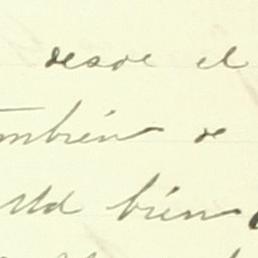 desde el
también de
Ud bien